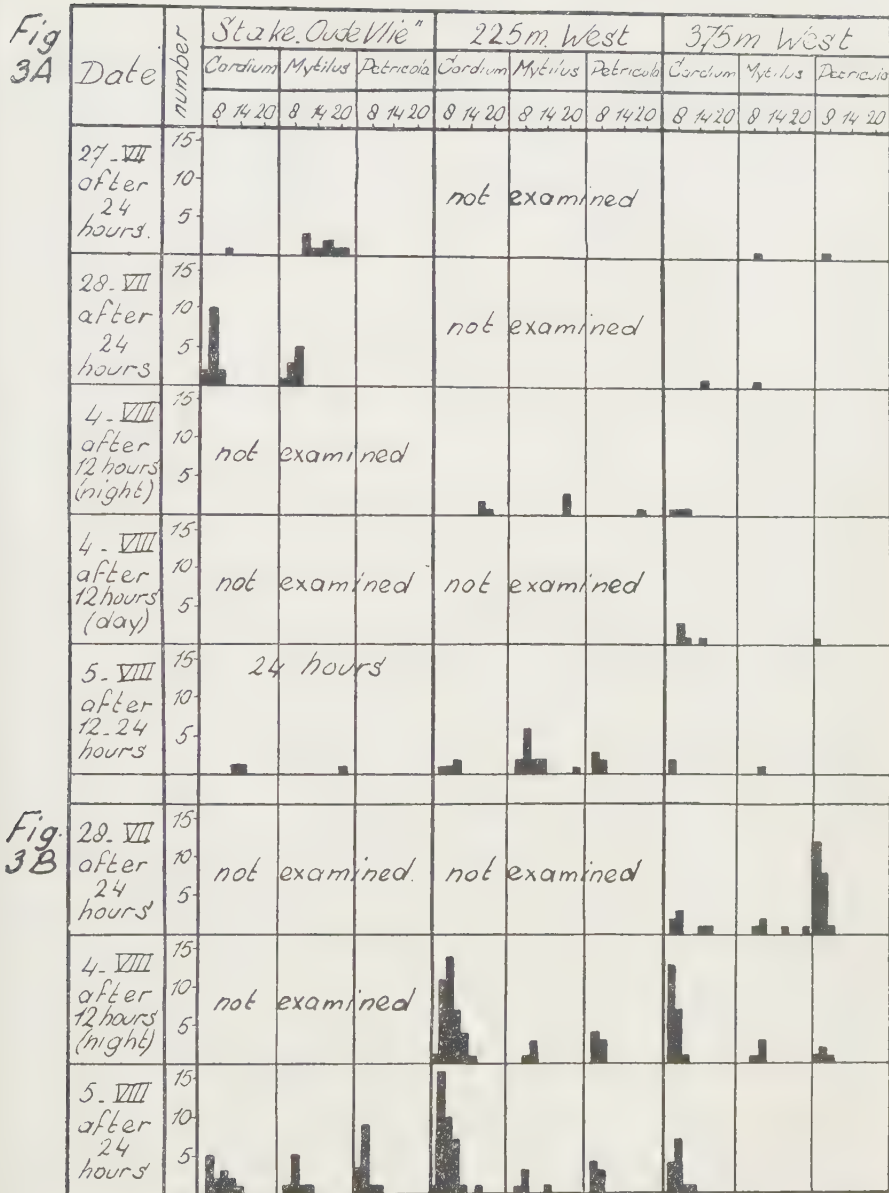 Fig 3A
Date number Stake „OudeVlie" 225m. West 375m West
Cardium Mytilus Petricola Cardium Mytilus Petricola Cardium Mytilus Petricola
8 14 20 8 14 20 8 14 20 8 14 20 8 14 20 8 14 20 8 14 20 8 14 20 8 14 20
27-VII after 24 hours.
15
10
5
not examined
28-VII after 24 hours
15
10
5
not examined
4-VIII after 12 hours (night)
15
10
5
not examined
4-VIII after 12 hours (day)
15
10
5
not examined not examined
5-VIII after 12-24 hours
15
10
5
24 hours
Fig. 3B
28-VII after 24 hours
15
10
5
not examined. not examined
4-VIII after 12 hours (night)
15
10
5
not examined
5-VIII after 24 hours
15
10
5